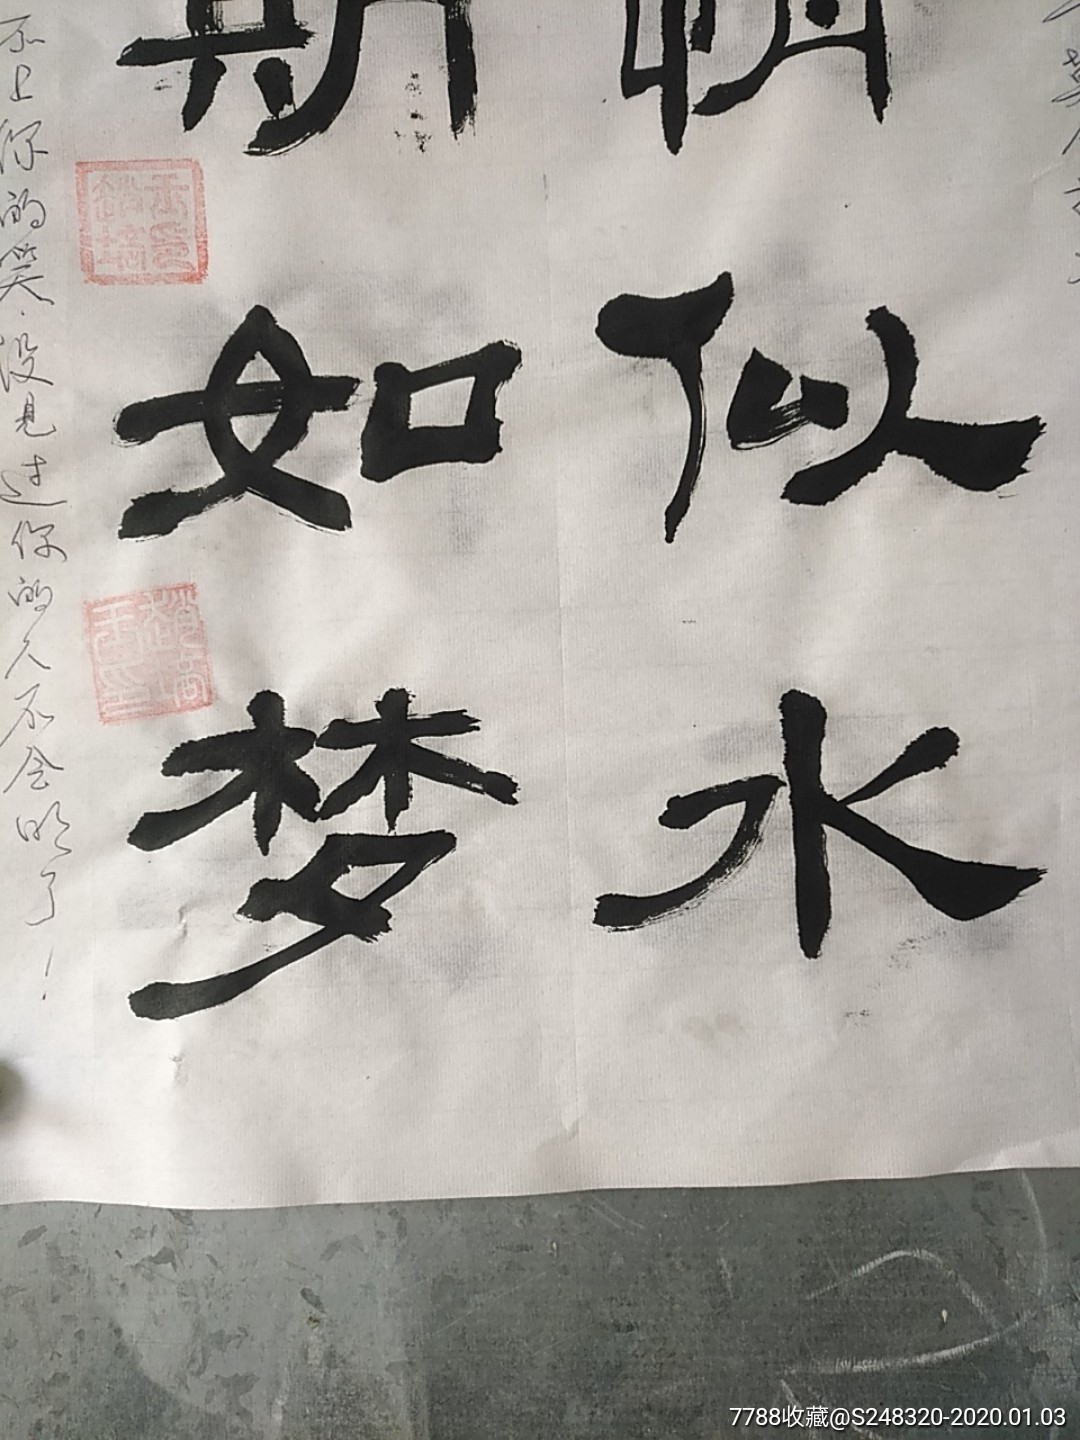 情似水
期如梦
不上你的笑.没见过你的人不会明了！
7788收藏@S248320-2020.01.03